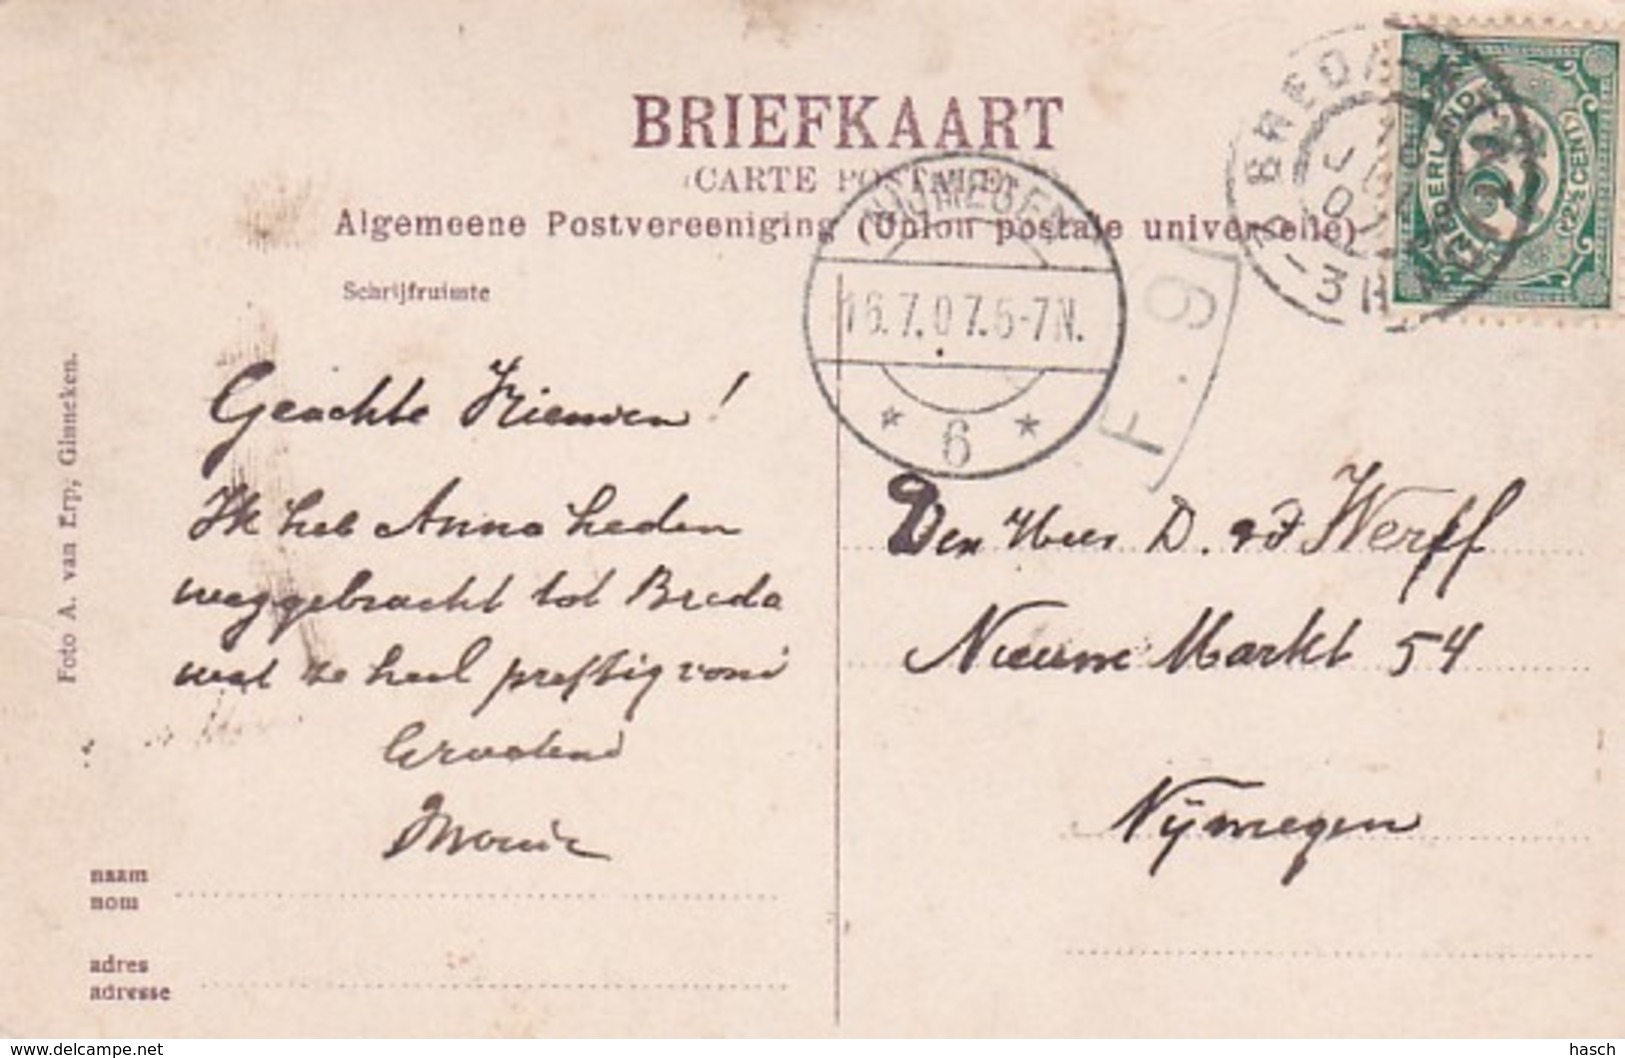 BRIEFKAART
(CARTE POSTALE)
Algemeene Postvereeniging (Union postale universelle)
Schrijfruimte
Foto A. van Erp, Ginneken.
NIJMEGEN
16.7.07.6-7N.
* 6 *
F. 9
BREDA
NEDERLAND
2½
(2½ CENT)
Geachte
Ik heb Anna heden
weggebracht tot Breda
wat ze heel prettig vond
Groetend
Den Heer D. v d Werff
Nieuwe Markt 54
Nijmegen
naam
nom
adres
adresse
www.delcampe.net
hasch